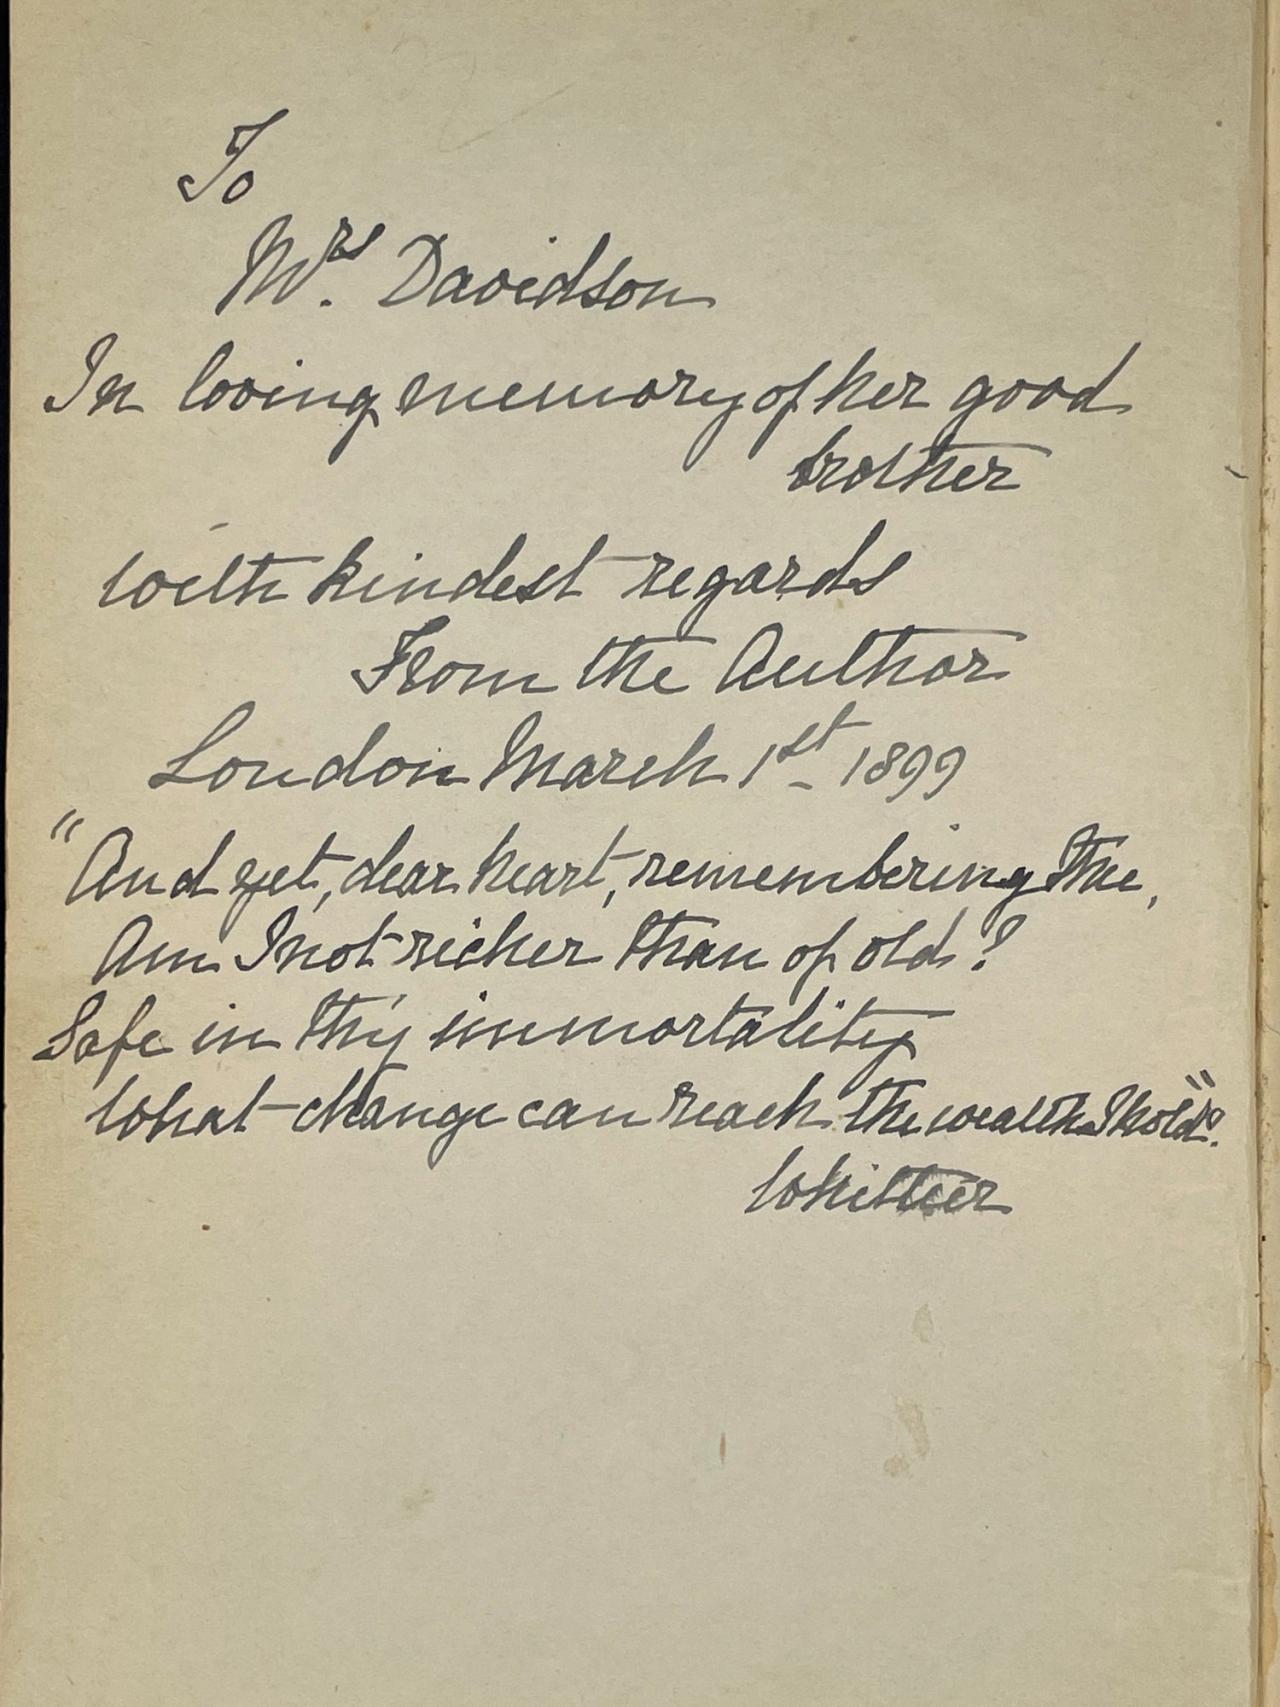 To
Mrs. Davidson
In loving memory of her good
brother
with kindest regards
From the Author
London March 1st 1899
"And yet, dear heart, remembering thee,
Am I not richer than of old?
Safe in thy immortality
What change can reach the wealth I hold?"
Whittier